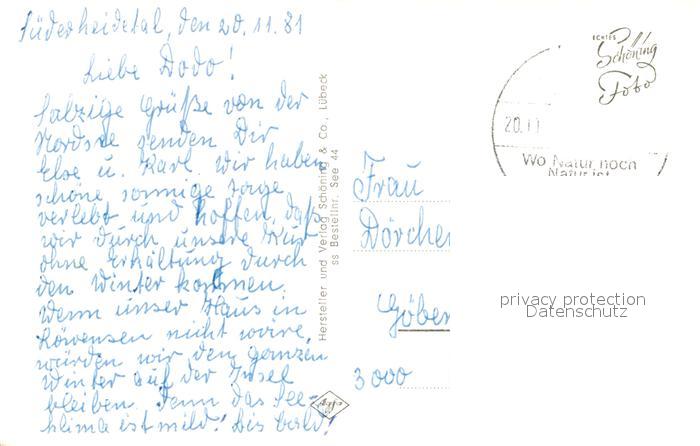 Süderheidetal, den 20.11.81
Liebe Dodo!
Salzige Grüße von der
Nordsee senden Dir
Else u. Karl. Wir haben
schöne sonnige Tage
verlebt und hoffen, daß
wir durch unsere Kur
ohne Erkältung durch
den Winter kommen.
Wenn unser Haus in
nicht wäre,
würden wir den ganzen
Winter auf der Insel
bleiben. Denn das See-
klima ist mild! Bis bald!
Hersteller und Verlag Schöning & Co., Lübeck
ss Bestellnr. See 44
Agfa
ECHTES
Schöning
Foto
20.11
Wo Natur noch
Natur ist
Frau
Dörchen
Göben
3000
privacy protection
Datenschutz